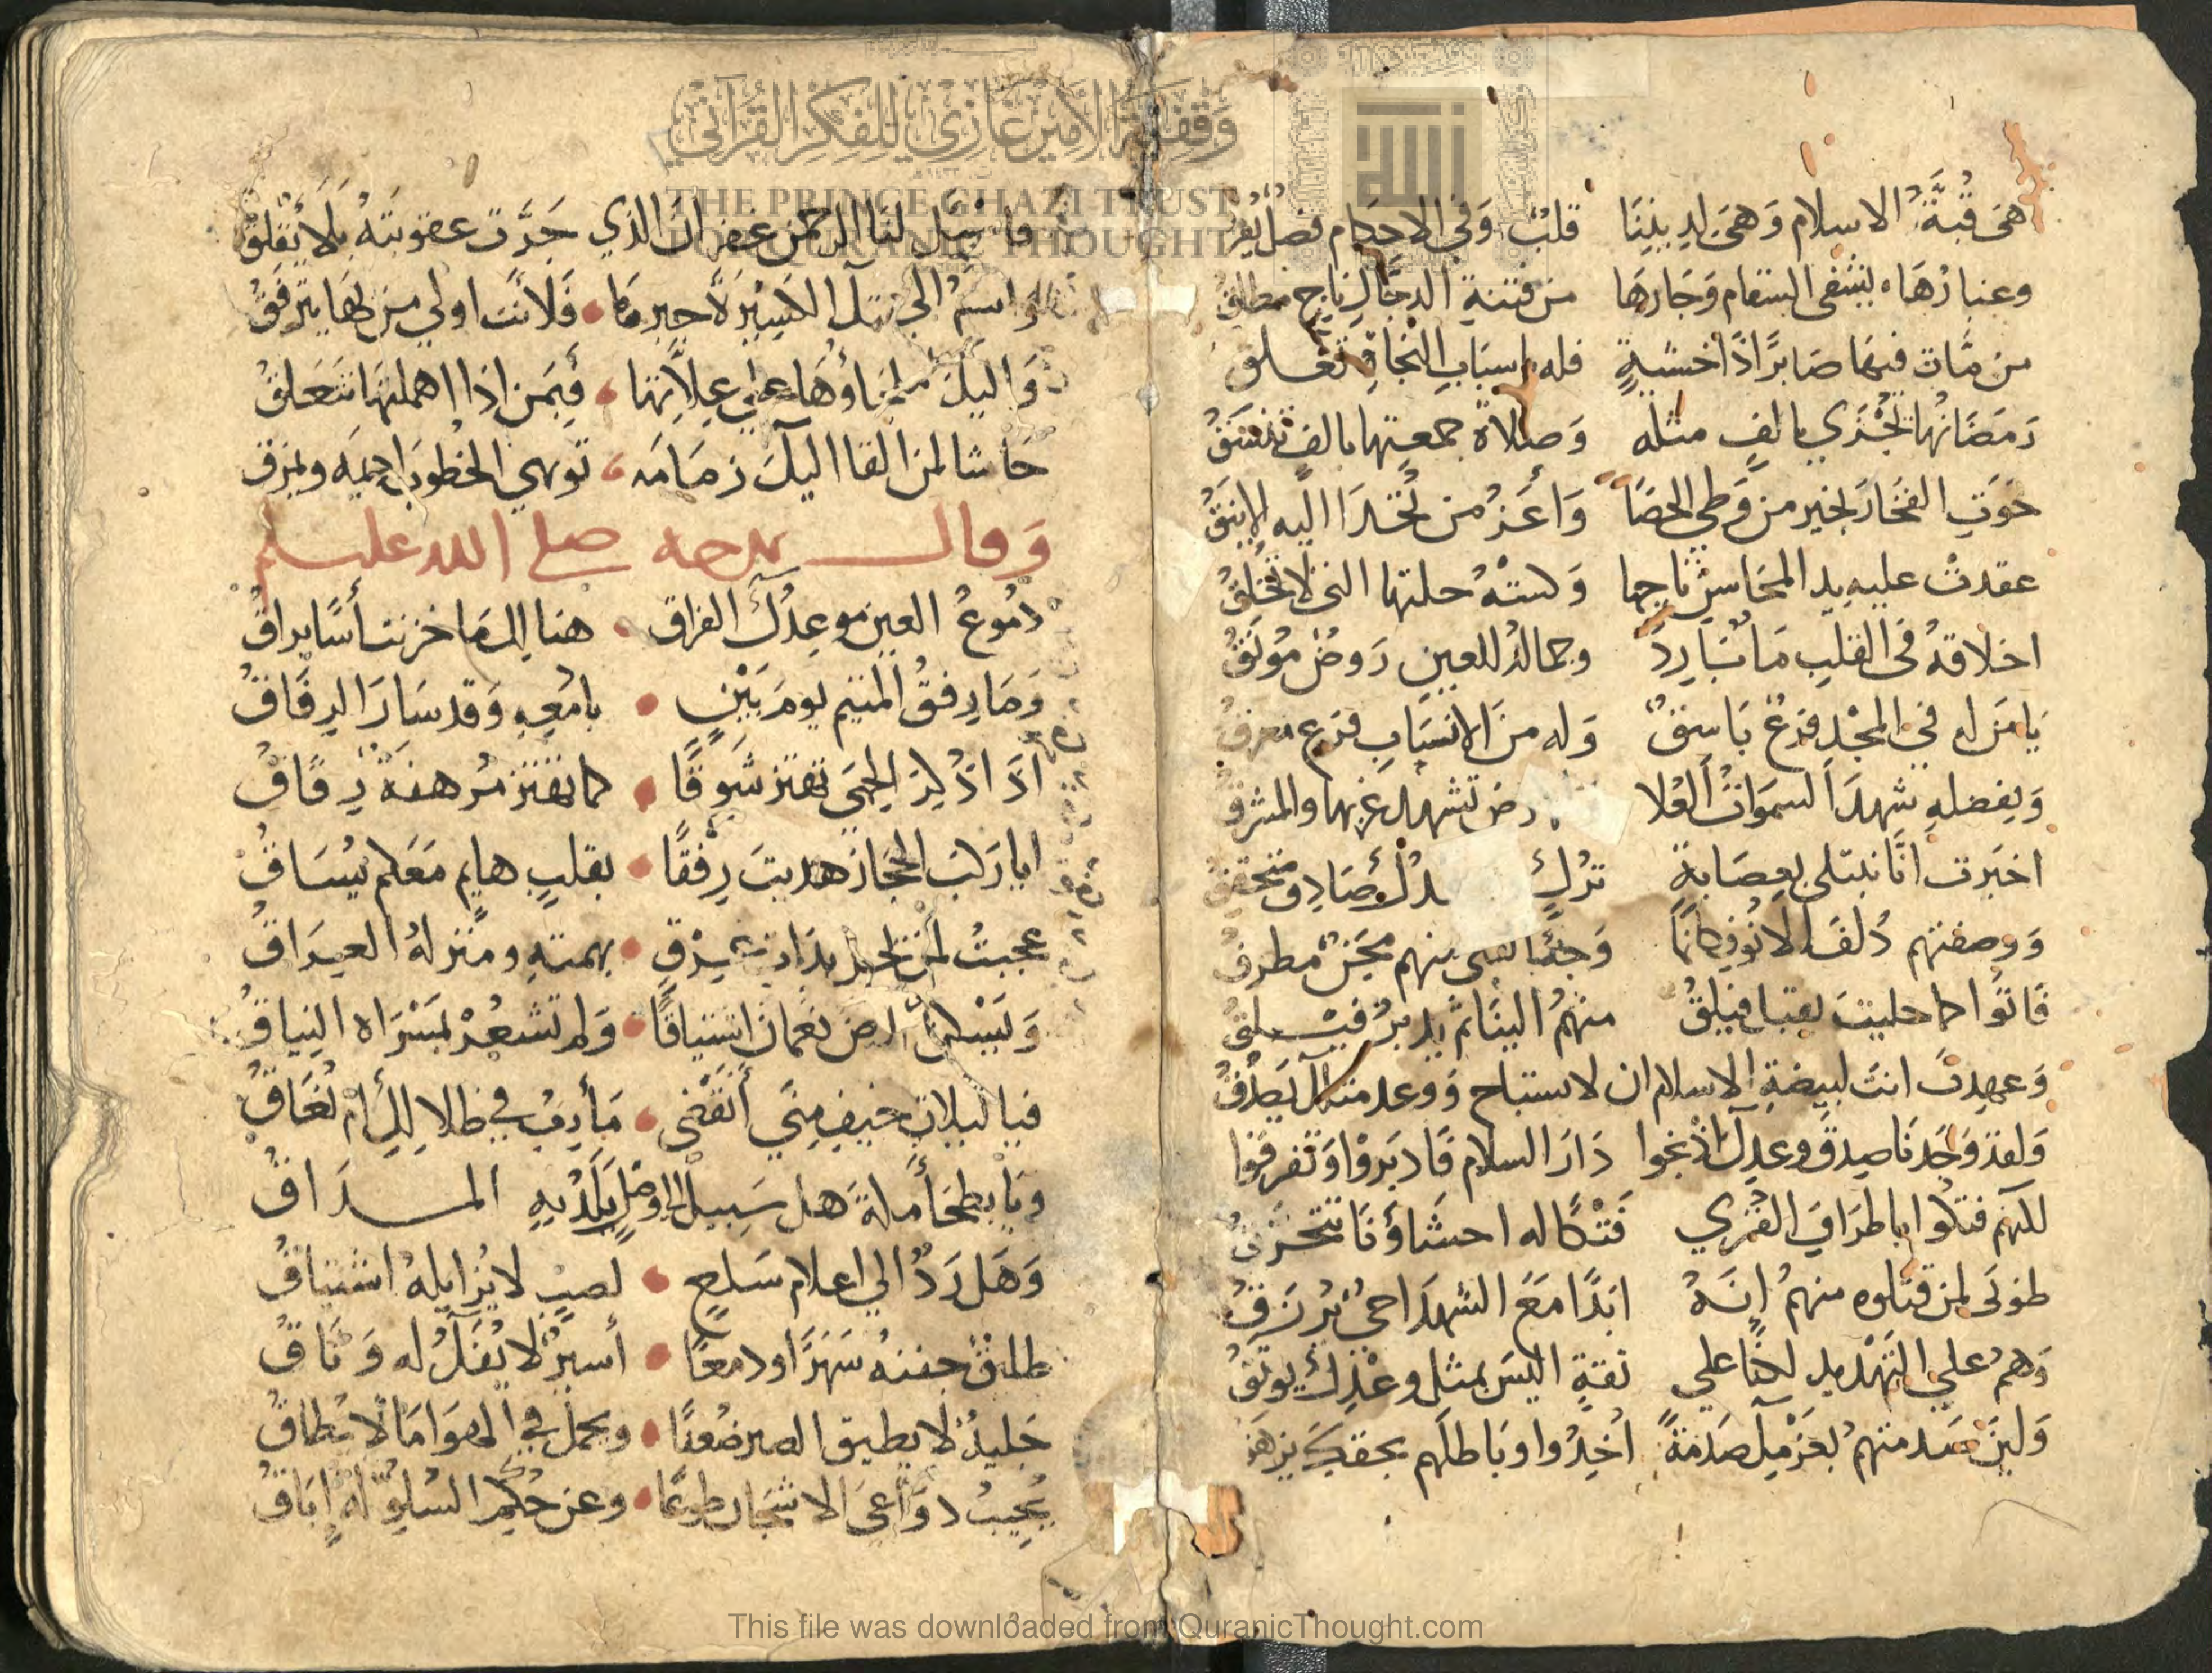 هي قبة الاسلام وهي لديننا قلب وفي الاحكام فصل
وغبارها يشفي السقام وجارها من فتنة الدجال ناج مطلق
من مات فيها صابرا ذا خشية فله باسباب النجاة تعلق
رمضانها يجزي بالف مثله وصلاة جمعتها بالف تنسق
حوت الفخار بخير من وطي الحصا واعز من تخدا اليه الاينق
عقدت عليه يد المحاسن تاجها وكسته حلتها التي لا تخلق
اخلاقه في القلب ما بارد وجماله للعين روض مونق
يا من له في المجد فرع باسق وله من الانساب فرع معرق
وبفضله شهد السموات العلا رض تشهد غربها والمشرق
اخبرت انا نبتلى بعصابة ترك صادق متحقق
ووصفتهم ذلف الانوف كانما وجه منهم مجن مطرق
فاتوا كما حليت يقتا فيلق منهم الينا ثم يدبر فيلق
وعهدت انت لبيضة الاسلام ان لا تستباح ووعد منك يصدق
ولقد وجدنا صدق وعدك اذ نحوا دار السلام فادبروا وتفرقوا
لكنهم فتكوا باطراف القرى فتكا له احشاؤنا تتحرق
طوبى لمن قتلوه منهم انه ابدا مع الشهدا حي يرزق
وهم على التهديد لكنا على ثقة اليس بمثل وعدك يوثق
ولين منهم بعزمك صدمة اخدوا وباطلهم بحقك يزهق
فاسيل لنا الرحمن غفران الذي جرت عقوبته بلا يقلق
واسم الي تلك الكسيرة جبر ما فلانت اولى من بها يترفق
واليك ملجاؤها على علاتها فبمن اذا اهملتها تتعلق
حاشا لمن القا اليك زمامه توهي الخطوب اديمه وتمزق
وقال يمدحه صلى الله عليه وسلم
دموع العين موعدك الفراق هنالك ما خزنت اسا يراق
وما رفق المتيم يوم بين بادمعه وقد سار الرفاق
اذا ذكر الحمى تهتز شوقا كما تهتز مرهفة رقاق
ايا ركب الحجاز هديت رفقا بقلب هايم معكم يساق
عجبت لمن بذات عرق بهمته ومنزله العراق
ويسكن ارض نعمان اشتياقا ولم تشعر لمسراه النياق
فيا ليلات خيف منى انقضى مأرب في ظلالك ام تعاق
ويا بطحأ مكة هل سبيل الى وصل يلذ به المذاق
وهل رد الى اعلام سلع لصب لا يزايله اشتياق
طليق جفنه سهرا ودمعا اسير لا يفك له وثاق
جليد لا يطيق الصبر ضعفا ويحمل في الهوا ما لا يطاق
يجيب دواعي الاشجان طوعا وعن حكم السلو له اباق
وقفية الامير غازي للفكر القرآني
THE PRINCE GHAZI TRUST
FOR QURANIC THOUGHT
This file was downloaded from QuranicThought.com